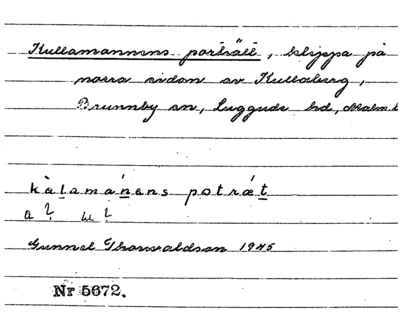 Kullamannens porträtt, klippa på
norra sidan av Kullaberg,
Brunnby sn, Luggude hd, Malm
kàlamánens potræt
a ?
Gunnel Thorvaldson 1945
Nr 5672.